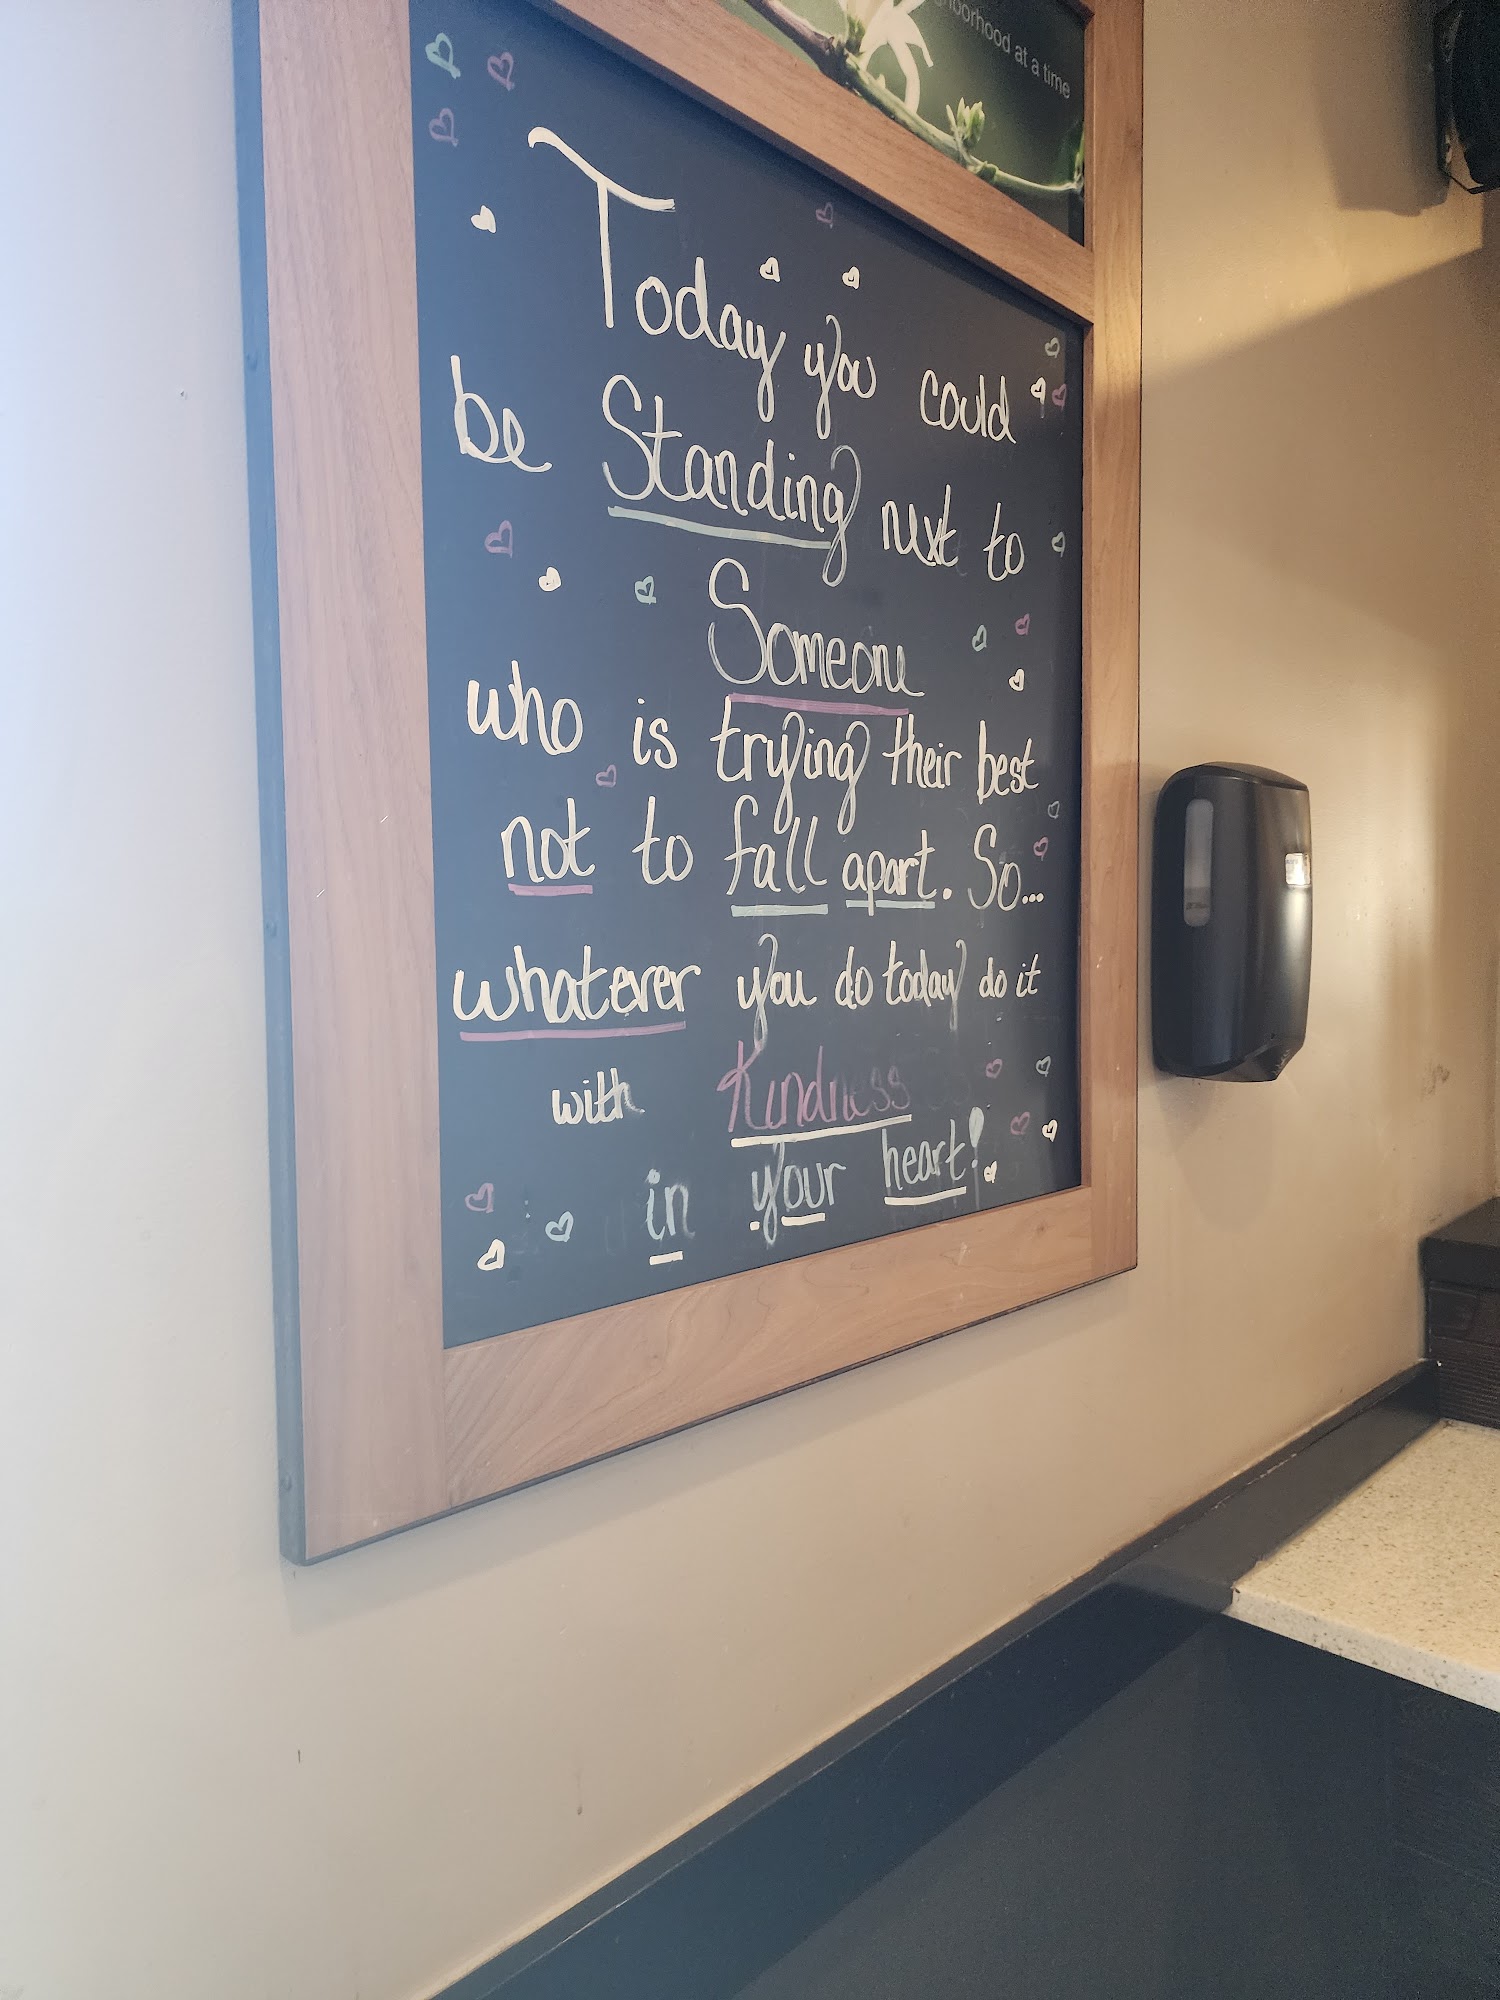 borhood at a time
Today you could
be Standing next to
Someone
who is trying their best
not to fall apart. So...
whatever you do today do it
with Kindness
in your heart!